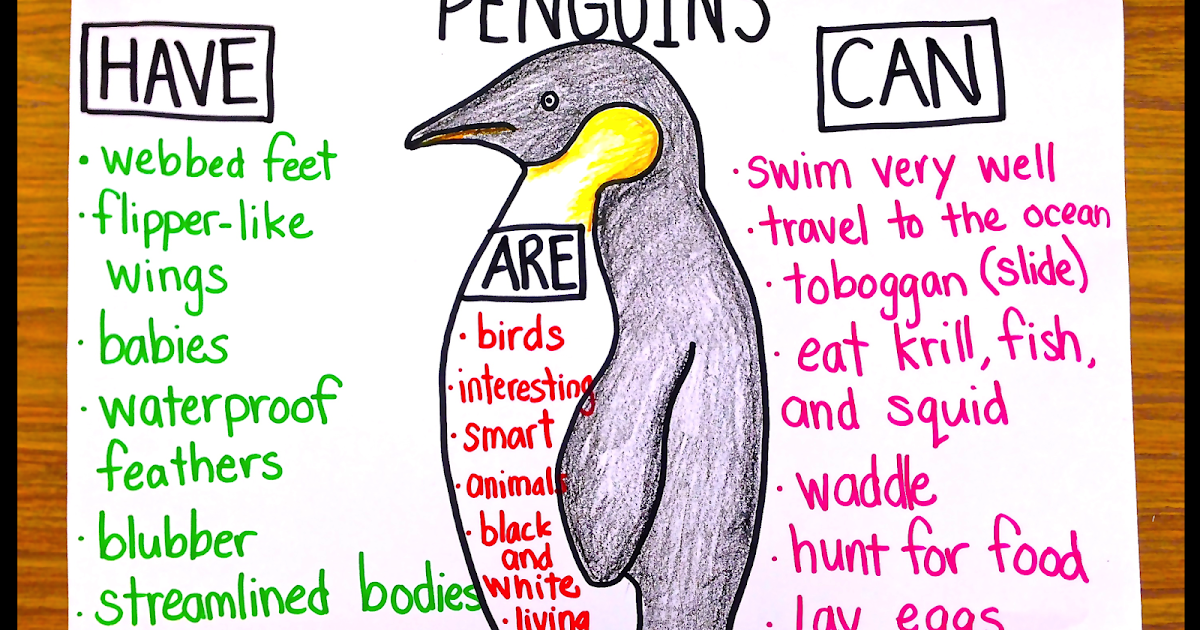 PENGUINS
HAVE
• webbed feet
• flipper-like
wings
• babies
• waterproof
feathers
• blubber
• streamlined bodies
ARE
• birds
• interesting
• smart
• animals
• black
and
white
• living
CAN
• swim very well
• travel to the ocean
• toboggan (slide)
• eat krill, fish,
and squid
• waddle
• hunt for food
• lay eggs